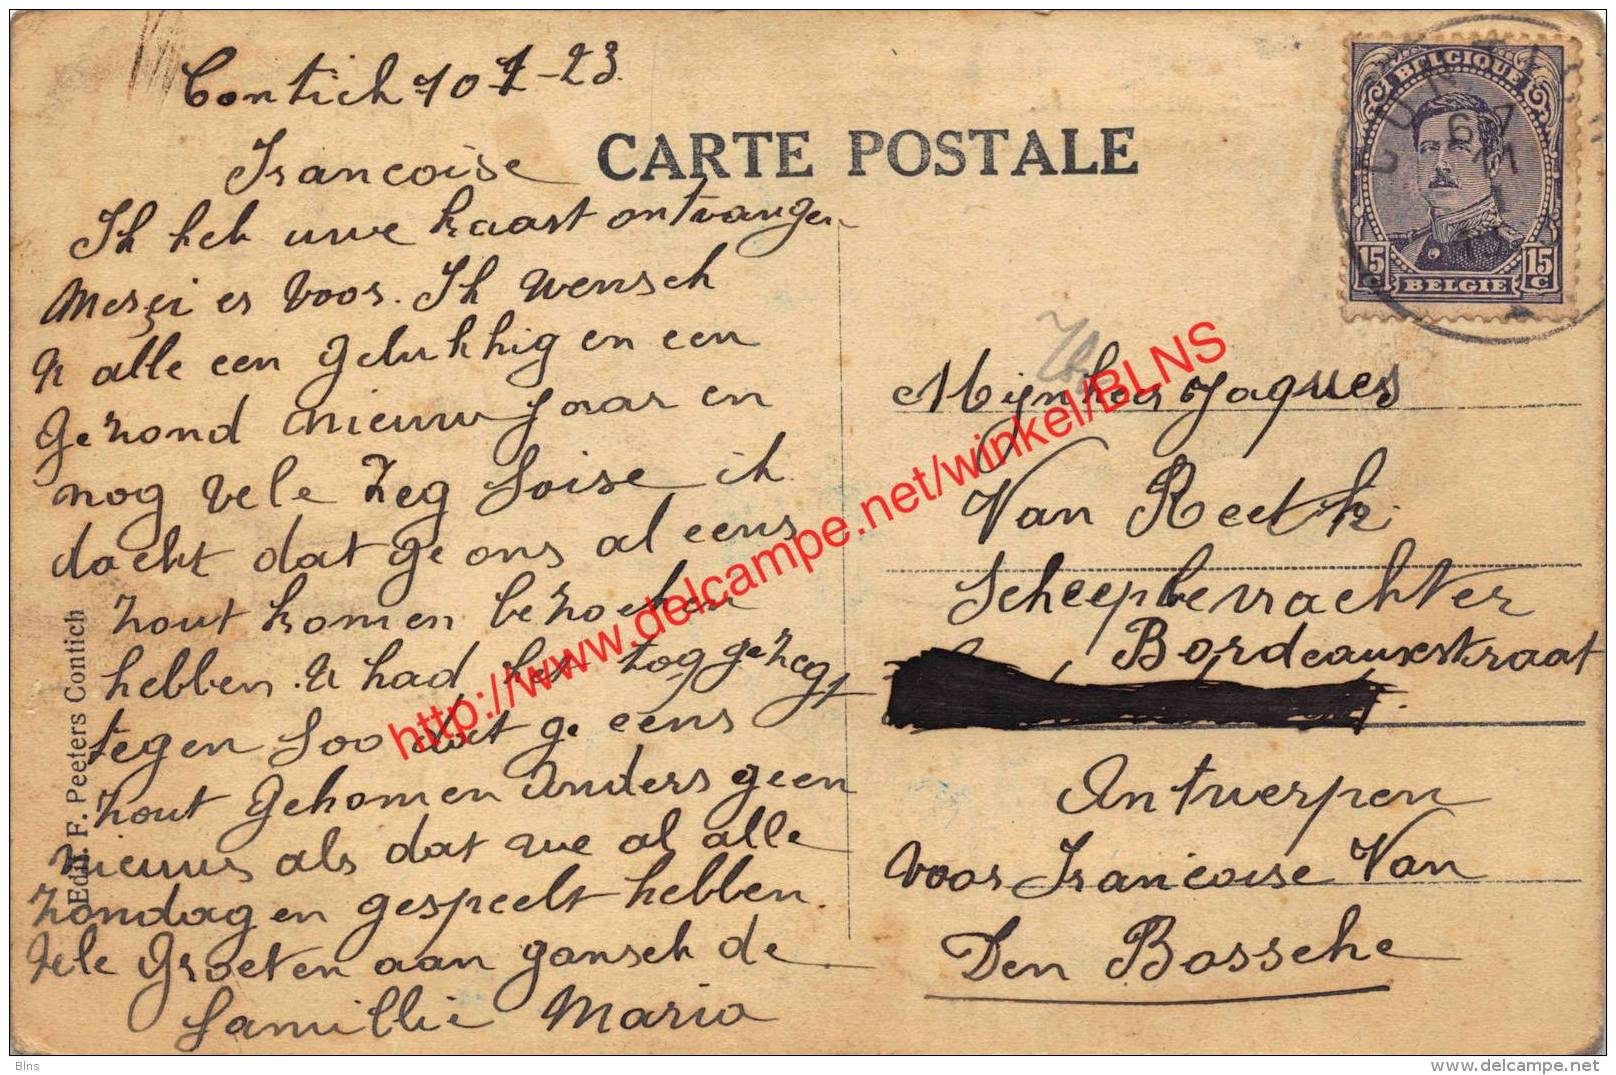 Contich 10 1-23.
Francoise
Ik heb uwe kaart ontvangen
Merçi er voor. Ik wensch
U alle een gelukkig en een
gezond nieuw jaar en
nog vele zeg Soise ik
dacht dat ge ons al eens
zout komen bezoeken
hebben. U had het tog gezegt
tegen Soo dat ge eens
zout gekomen anders geen
nieuws als dat we al alle
zondagen gespeelt hebben.
Vele Groeten aan gansch de
famillie Maria
Edit. F. Peeters Contich
CARTE POSTALE
BELGIQUE
15 c
15 c
BELGIE
Mijnheer Jaques
Van Reeth
Scheepbevrachter
Bordeauxstraat
Antwerpen
voor Francoise Van
Den Bossche
http://www.delcampe.net/winkel/BLNS
Blns
delcampe.net